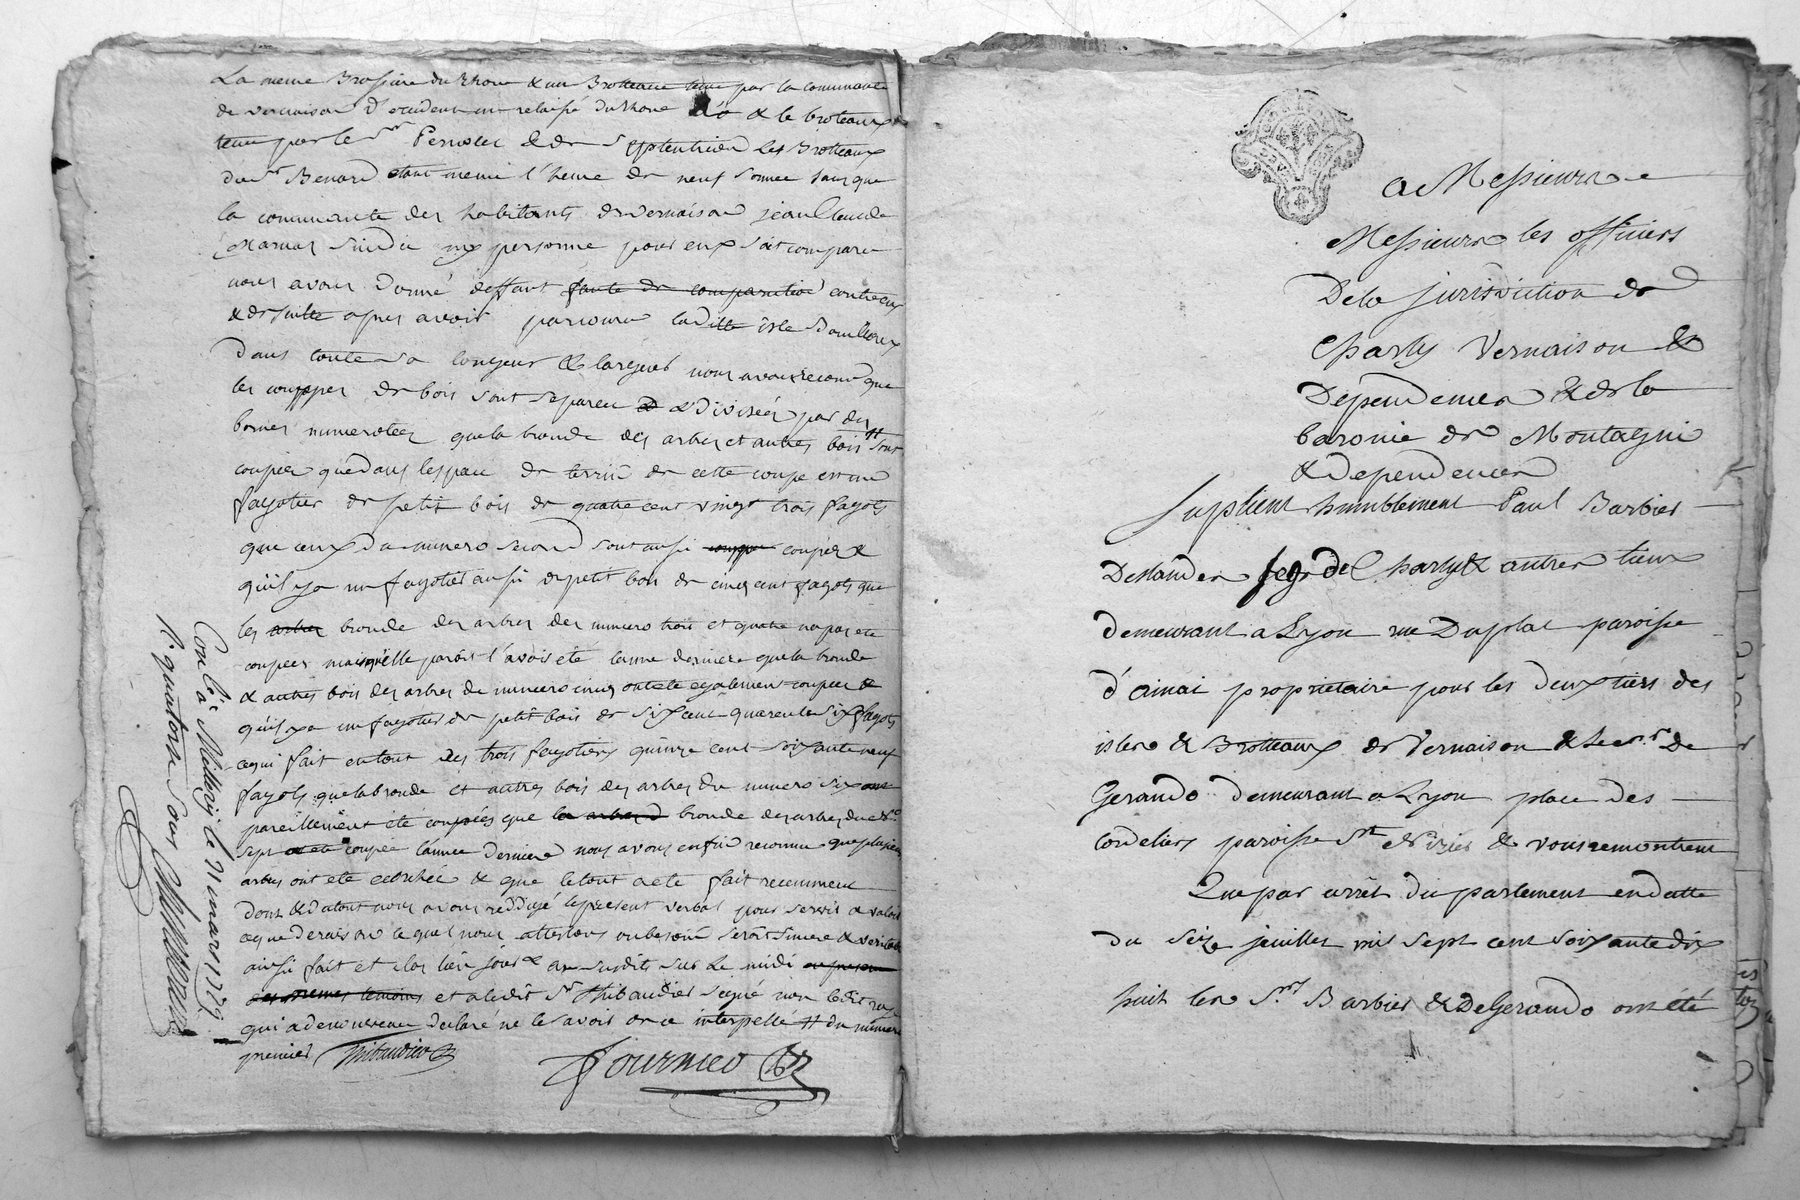 La meme Brossiere du Rhone & un Brotteaux tenu par la communauté
de vernaison d'occident un relaissé du Rhone & le broteaux
tenu par le Sr Pernolet & de Septentrion les Brotteaux
du Sr Benard etant meme l'heure de neuf sonnee sans que
la communauté des habitants de vernaison jean Claude
sindic ny personne pour eux soit comparu
nous avons donné deffaut faute de comparution contre eux
& de suitte apres avoir parcouru laditte isle
dans toute sa longeur & largeur nous avons reconnu que
les couppes de bois sont separees & divisées par des
bornes numerotées que la broude des arbres et autres bois # sont
coupés que dans lespace de terrein de cette coupe est un
fagotier de petit bois de quatre cent vingt trois fagots
que ceux du numero second sont aussi coupés &
quil y a un fagotier aussi de petit bois de cinq cent fagots que
les arbres broude des arbres des numero trois et quatre na pas ete
coupees mais qu'elle paroit l'avoir été lannee derniere que la broude
& autres bois des arbres du numero cinq ont ete egalement coupees &
quil y a un fagotier de petit bois de six cent quarente six fagots
ce qui fait en tout des trois fagotiers quinze cent soixante neuf
fagots que la broude et autres bois des arbres du numero six ont
pareillement eté coupées que les arbres broude des arbres du no
sept a ete coupée lannee derniere nous avons enfin reconnu que plusieurs
arbres ont ete & que le tout a ete fait recemment
dont & du tout nous avons reddigé le present verbal pour servir & valoir
ce que de raison lequel nous attestons au besoin serat sincere & veritable
ainsi fait et clos lieu jour & an susdits sur le midi
temoins et a ledit Sr Thibaudier signé non ledit
qui a de nouveau declaré ne le savoir de ce interpellé # du numero
premier Thibaudier
Fournier
Conlé a Millery le 21 mars 1779
R. quatorze sous
a Messieurs
Messieurs les officiers
De la jurisdiction de
Charly Vernaison &
Dependences & de la
baronie de Montagni
& dependences
Suplient humblement Paul Barbier
Deslandes segr de Charly & autres lieux
demeurant a Lyon rue Duplat paroisse
d'ainai proprietaire pour les deux tiers des
isles & Brotteaux de Vernaison & le sr de
Gerando demeurant a Lyon place des
cordeliers paroisse St Nizier & vous remontrent
Que par arrêt du parlement en datte
du seize juillet mil sept cent soixante dix
huit les Srs Barbier & DeGerando ont été